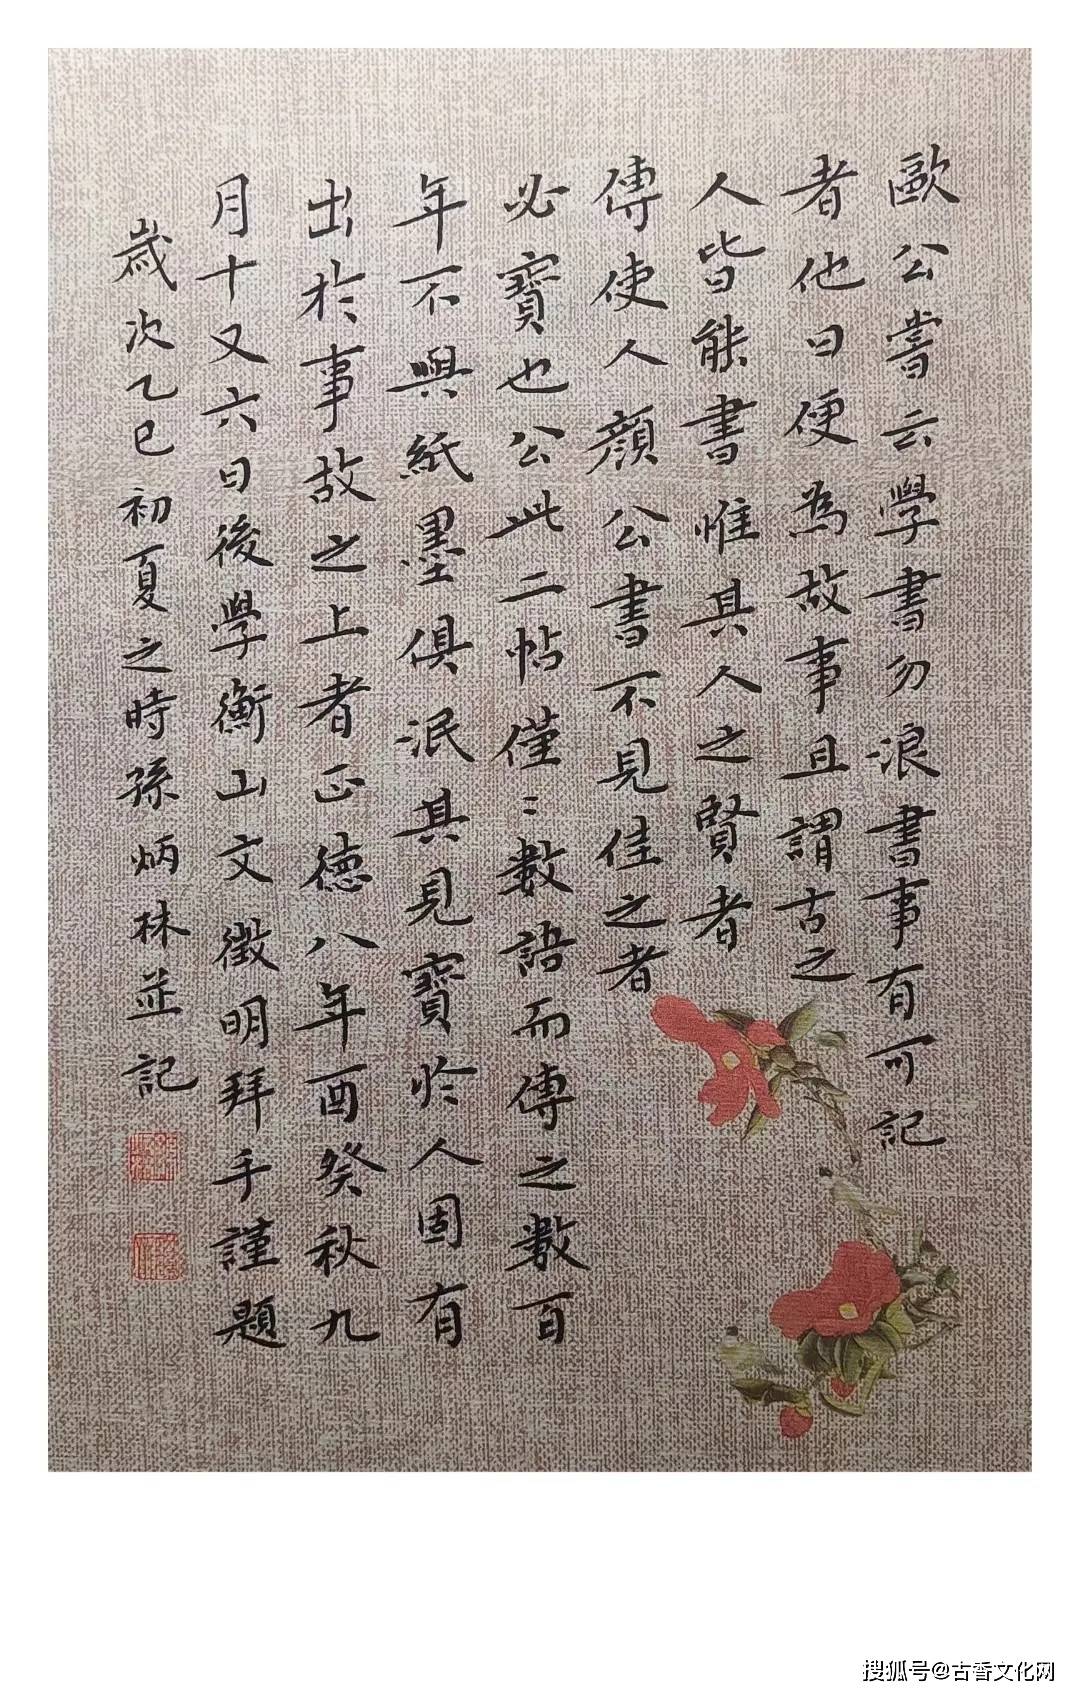 歐公嘗云學書勿浪書事有可記
者他日便為故事且謂古之
人皆能書惟其人之賢者
傳使人顏公書不見佳之者
必寶也公此二帖僅〻數語而傳之數百
年不與紙墨俱泯其見寶於人固有
出於事故之上者正德八年酉癸秋九
月十又六日後學衡山文徵明拜手謹題
歲次乙巳初夏之時孫炳林並記
搜狐号@古香文化网